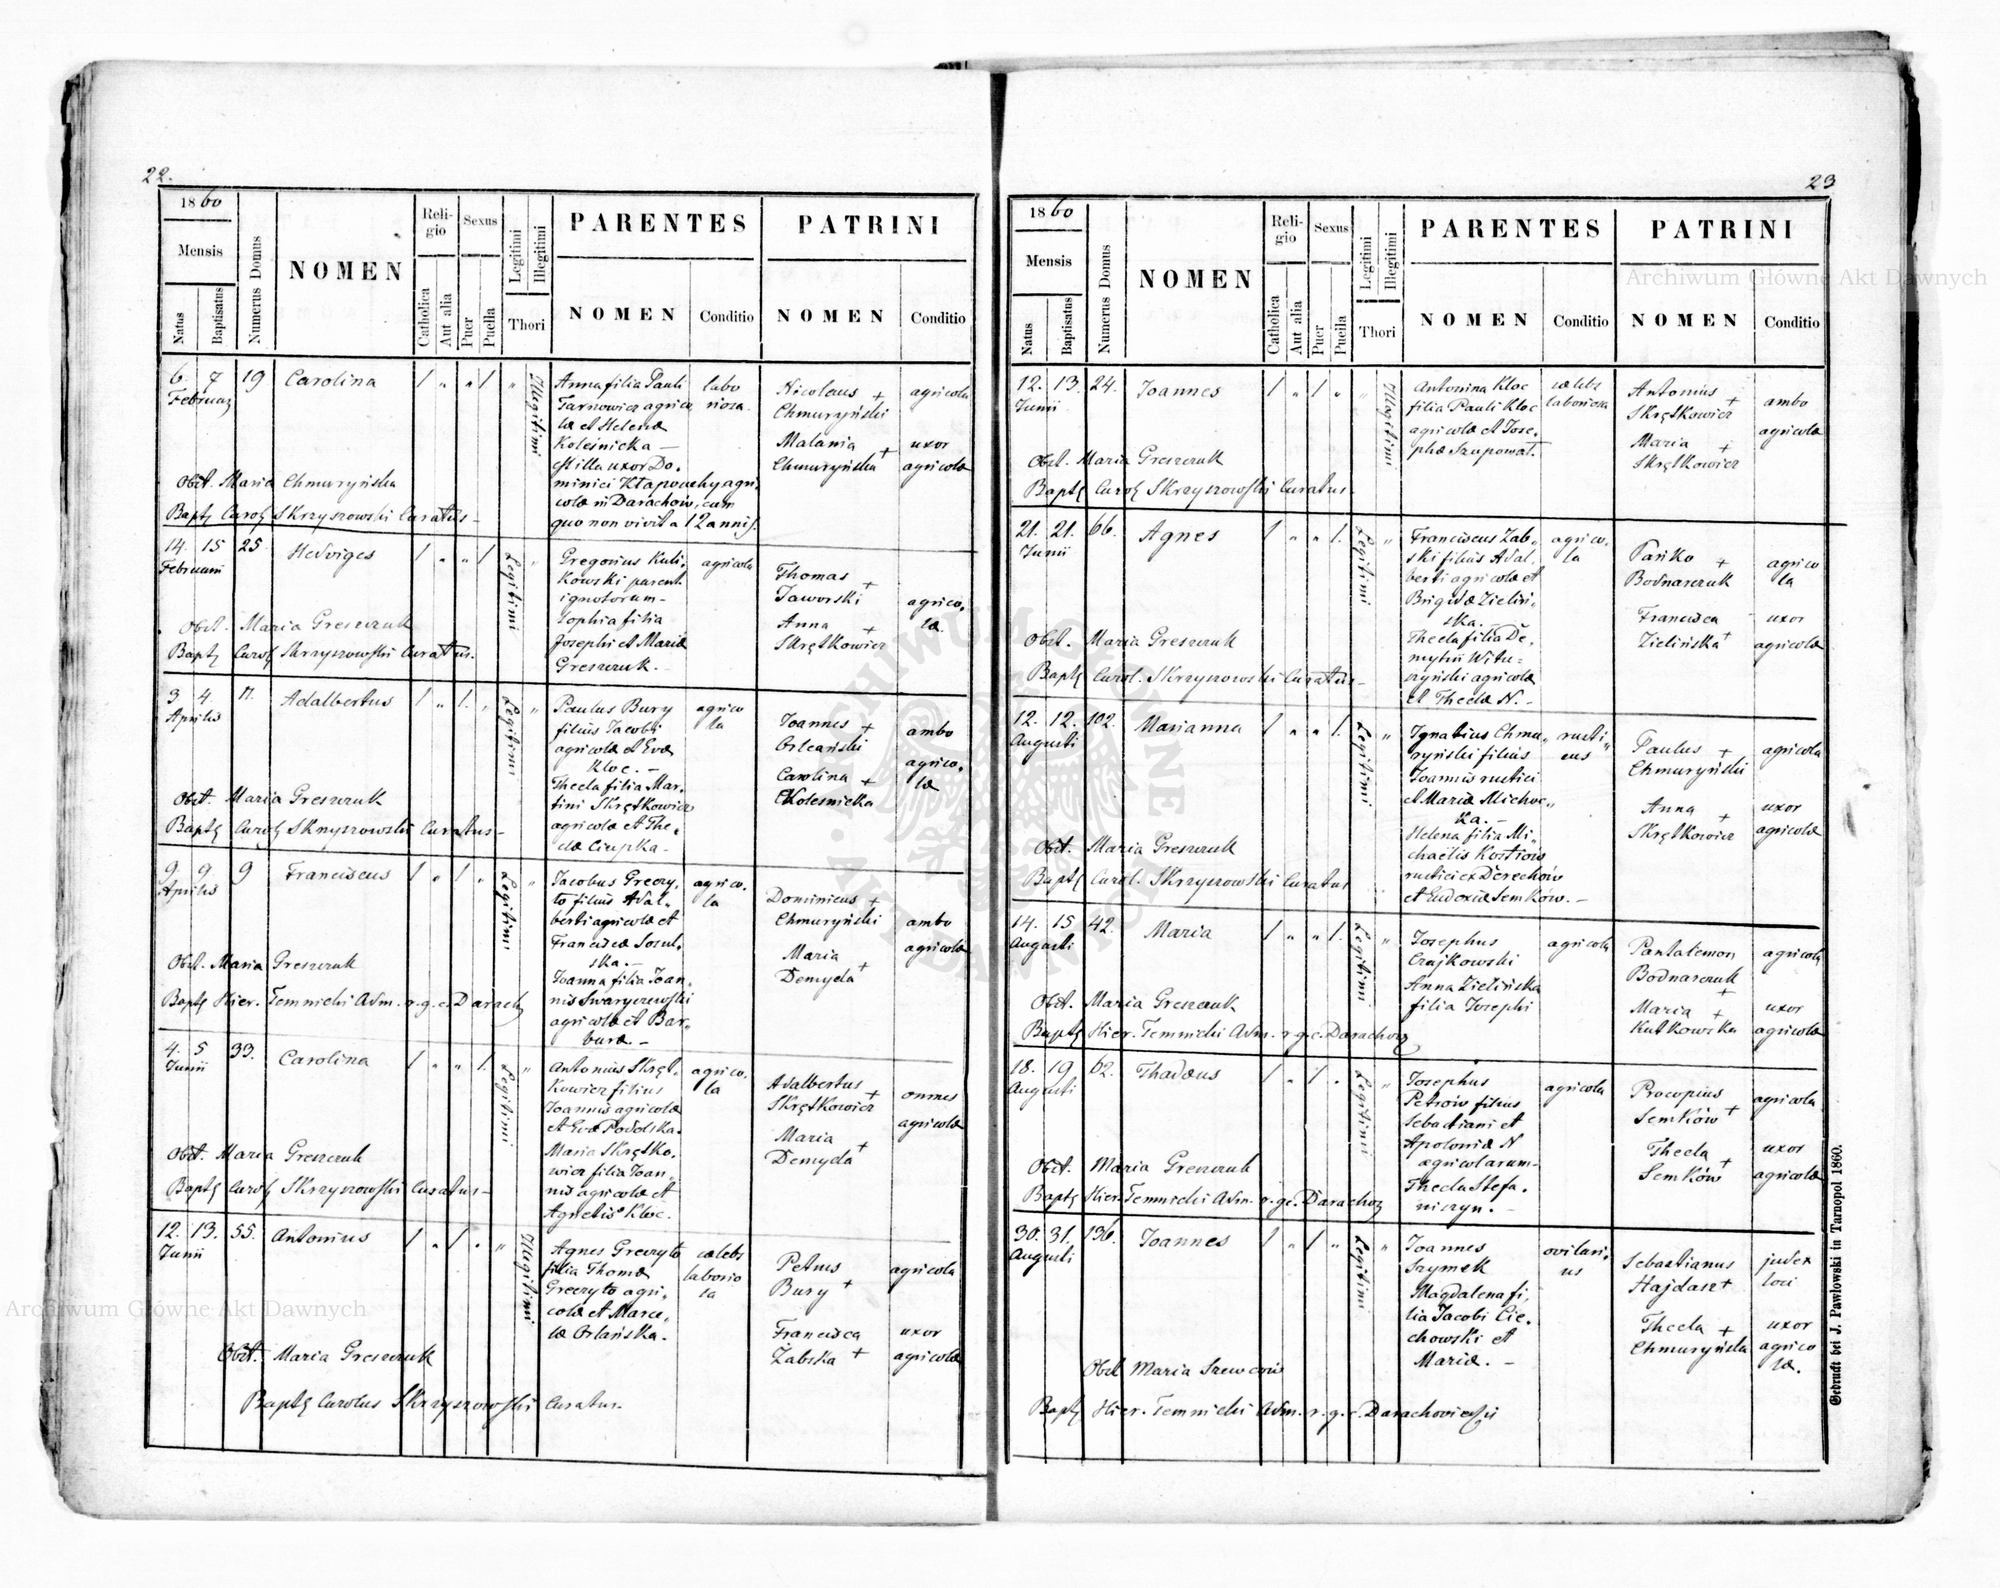 22.
1860
Mensis
Natus
Baptisatus
Numerus Domus
NOMEN
Religio
Catholica
Aut alia
Sexus
Puer
Puella
Legitimi
Illegitimi
Thori
PARENTES
NOMEN
Conditio
PATRINI
NOMEN
Conditio
6. 7 19 Carolina 1 " " 1 " Illegitimi
Februar
Anna filia Pauli
Tarnowicz agrico
læ et Helenæ
Koleśnicka —
est illa uxor Do-
minici Kłapouchy agri
colæ in Darachów, cum
quo non vivit a 12 annis.
labo
riosa
Nicolaus +
Chmuryński
Malania +
Chmuryńska
agricola
uxor
agricolæ
Obst. Maria Chmuryńska
Bapt Carol Skrzyszowski Curatus -
14. 15 25. Hedviges 1 " " 1 Legitimi "
Februarii
Gregorius Kuli-
kowski parent
ignotorum -
Sophia filia
Josephi et Mariæ
Greszczuk. -
agricola
Thomas +
Jaworski
Anna +
Skrętkowicz
agrico-
læ
Obst. Maria Greszczuk
Bapt Carol Skrzyszowski Curatus.
3 4 11. Adalbertus 1 " 1. " Legitimi "
Aprilis
Paulus Bury
filius Jacobi
agricolæ et Evæ
Kloc. -
Thecla filia Mar-
tini Skrętkowicz
agricolæ et The-
clæ Ciupka -
agrico
la
Joannes +
Orleański
Carolina +
Kolesnicka
ambo
agrico-
læ
Obst. Maria Greszczuk
Bapt Carol Skrzyszowski Curatus -
9. 9. 9 Franciscus 1 " 1 " Legitimi "
Aprilis
Jacobus Greczy-
to filius Adal-
berti agricolæ et
Franciscæ Sosul-
ska. -
Joanna filia Joan-
nis Swaryczewski
agricolæ et Bar-
baræ. -
agrico-
la
Dominicus +
Chmuryński
Maria +
Demyda
ambo
agricolæ
Obst. Maria Greszczuk
Bapt Hier. Temnicki Adm. r. g. c. Darach
4. 5 33. Carolina 1 " " 1. Legitimi "
Junii
Antonius Skręt-
kowicz filius
Joannis agricolæ
et Evæ Podolska.
Maria Skrętko-
wicz filia Joan-
nis agricolæ et
Agnetis Kloc.
agrico-
la
Adalbertus +
Skrętkowicz
Maria +
Demyda
omnes
agricolæ
Obst. Maria Greszczuk
Bapt Carol Skrzyszowski Curatus -
12. 13. 55. Antonius 1 " 1 " " Illegitimi
Junii
Agnes Greczyto
filia Thomæ
Greczyto agri-
colæ et Marce-
læ Orlańska.
cælebs
laborio
sa
Petrus
Bury +
Francisca
Zabska +
agricola
uxor
agricolæ
Obst. Maria Greszczuk
Bapt Carolus Skrzyszowski Curatus.
23
1860
Mensis
Natus
Baptisatus
Numerus Domus
NOMEN
Religio
Catholica
Aut alia
Sexus
Puer
Puella
Legitimi
Illegitimi
Thori
PARENTES
NOMEN
Conditio
PATRINI
NOMEN
Conditio
12. 13. 24. Joannes 1 " 1 " " Illegitimi
Junii
Antonina Kloc
filia Pauli Kloc
agricolæ et Jose-
phæ Szupowat.
cælebs
laboriosa
Antonius +
Skrętkowicz
Maria +
Skrętkowicz
ambo
agricolæ
Obst. Maria Greszczuk
Bapt Carol Skrzyszowski Curatus -
21. 21. 66. Agnes 1 " " 1. Legitimi "
Junii
Franciscus Zab-
ski filius Adal-
berti agricolæ et
Brigidæ Zieliń-
ska. -
Thecla filia De-
mytrii Witu-
szyński agricolæ
et Theclæ N. -
agrico-
la
Pańko +
Bodnarczuk
Francisca
Zielińska +
agrico
la
uxor
agricolæ
Obst. Maria Greszczuk
Bapt Carol. Skrzyszowski Curatus -
12. 12. 102. Marianna 1 " " 1. Legitimi "
Augusti
Ignatius Chmu-
ryński filius
Joannis rustici
et Mariæ Michoc-
ka. -
Helena filia Mi-
chaëlis Kostiów
rustici ex Derechów
et Eudoxiæ Semków. -
rusti
cus
Paulus +
Chmuryński
Anna +
Skrętkowicz
agricola
uxor
agricolæ
Obst. Maria Greszczuk
Bapt Carol. Skrzyszowski Curatus
14. 15 42. Maria 1 " " 1. Legitimi "
Augusti
Josephus
Czajkowski
Anna Zielińska
filia Josephi
agricola
Pantalemon
Bodnarczuk
+
Maria +
Kutkowska
agricola
uxor
agricolæ
Obst. Maria Greszczuk
Bapt Hier. Temnicki Adm. r. g. c. Darachov
18. 19 62. Thadæus 1 " 1 " Legitimi "
Augusti
Josephus
Petrów filius
Sebastiani et
Apoloniæ N
agricolarum -
Thecla Stefa-
niszyn. -
agricola
Procopius
Semków +
Thecla +
Semków
agricola
uxor
agricolæ
Obst. Maria Greszczuk
Bapt Hier. Temnicki Adm. r. g. c. Darachov
30. 31. 136. Joannes 1 " 1 " Legitimi "
Augusti
Joannes
Szymek
Magdalena fi-
lia Jacobi Cie-
chowski et
Mariæ. -
ovilari-
us
Sebastianus
Hajdasz +
Thecla +
Chmuryńska
judex
loci
uxor
agrico
læ.
Obst Maria Szewców
Bapt Hier. Temnicki Adm. r. g. c. Darachoviensis
Gedruckt bei J. Pawłowski in Tarnopol 1860.
Archiwum Główne Akt Dawnych
Archiwum Główne Akt Dawnych
ARCHIWUM GŁÓWNE AKT DAWNYCH